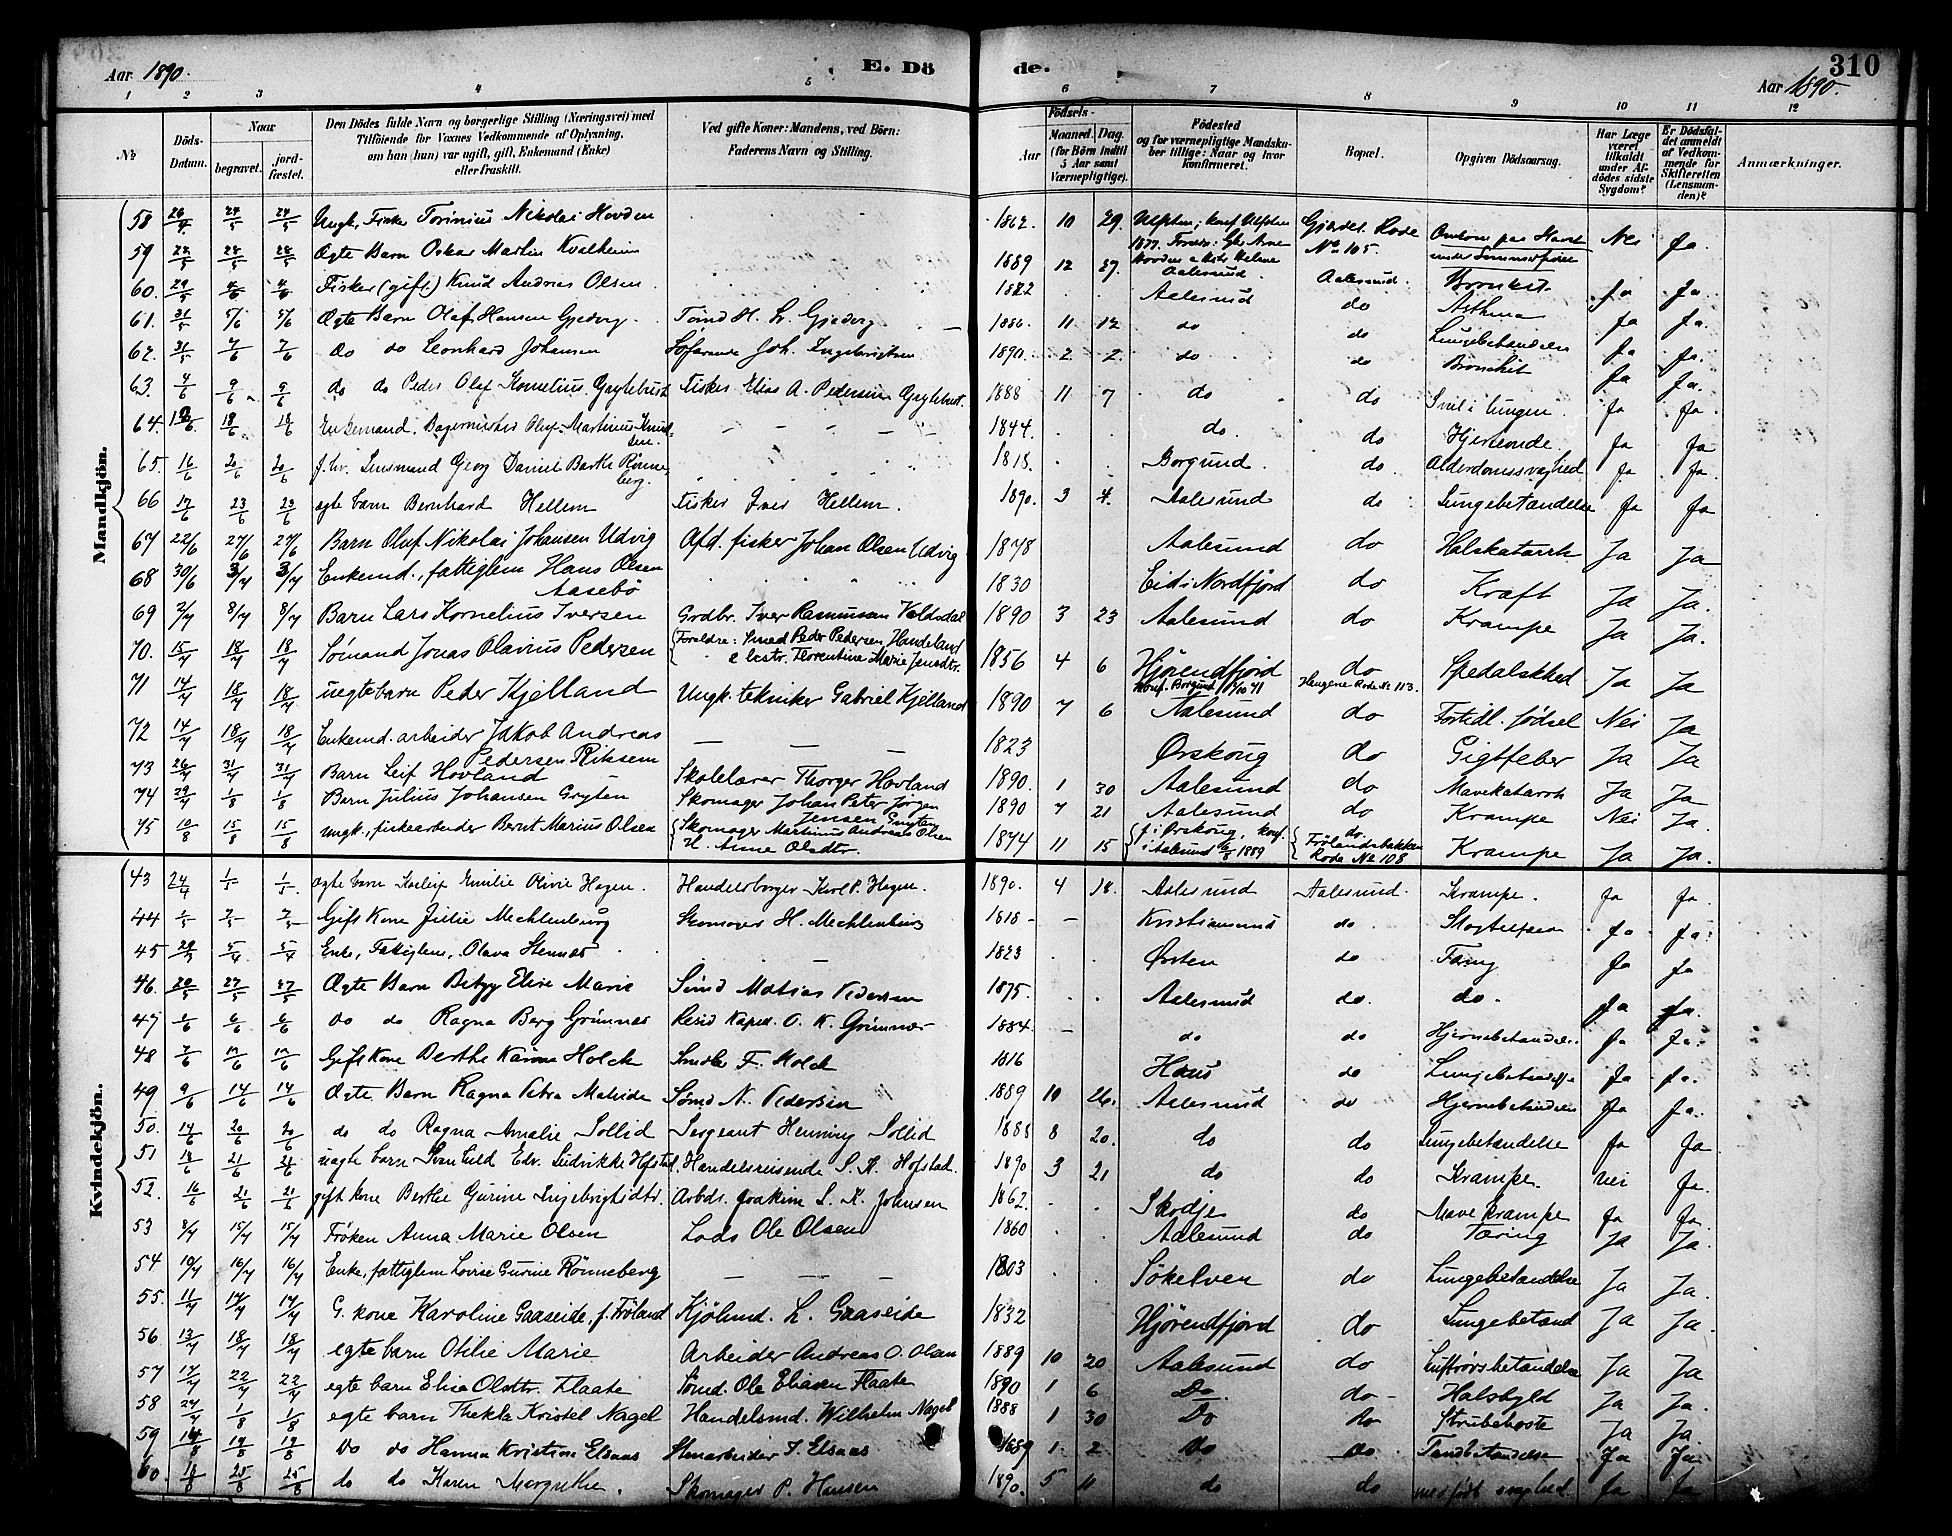 310
Aar 1890.
E. Dö
de.
Aar 1890.
1 2 3 4 5 6 7 8 9 10 11 12
№
Döds-Datum.
Naar
begravet.
jord-fæstet.
Den Dödes fulde Navn og borgerlige Stilling (Næringsvei) med
Tilföiende for Voxnes Vedkommende af Oplysning,
om han (hun) var ugift, gift, Enkemand (Enke)
eller fraskilt.
Ved gifte Koner: Mandens, ved Börn:
Faderens Navn og Stilling.
Födsels-
Aar
Maaned. Dag.
(for Börn indtil
5 Aar samt
Værnepligtige).
Födested
og for værnepligtige Mandska-
ber tillige: Naar og hvor
konfirmeret.
Bopæl.
Opgiven Dödsaarsag.
Har Læge
været
tilkaldt
under Af-
dödes sidste
Sygdom?
Er Dödsfal-
det anmeldt
af Vedkom-
mende for
Skifteretten
(Lensman-
den)?
Anmærkninger.
Mandkjön.
58 Ungk. Fisker Torinius Nikolai Hovden 1862. 10 29. Ulfsten; konf. Ulfsten Gjerdet Rode No 105. Nei Ja.
59 Ægte Barn Oskar Martin Kvalheim 1889 12 27. Aalesund. Aalesund. Bronkit. Ja Ja.
60. Fisker (gift) Knud Andreas Olsen Aalesund do Asthma Ja Ja.
61. 31/5 5/6 5/6 Ægte Barn Olaf Hansen Gjedvig. Tømd H. L. Gjedvig 1886 11 12 do do Lungebetændelse Ja Ja.
62. 31/5 7/6 7/6 do do Leonhard Johansen Søfarende Joh. Ingebrigtsen 1890. 2 2. do do Bronchit Ja Ja.
63. 4/6 9/6 9/6 do do Peder Olaf Kornelius Grytebust Fisker Elias A. Pedersen Grytebust. 1888 11 7 do do Snil i lungen. Ja Ja.
64. 18/6 18/6 Enkemand. Bagermester Oluf Martinius Knudsen. 1844. do. do Hjerneonde Ja Ja
65. 16/6 20/6 20/6 f. hv. Lensmand Georg Daniel Barth Rønneberg. 1818. Borgund. do. Alderdomssvaghed Ja Ja.
66 17/6 23/6 23/6 egte barn Bernhard Hellem Fisker Iver Hellem. 1890. 3 4. Aalesund do Lungebetændelse Ja Ja
67 22/6 27/6 27/6 Barn Oluf Nikolai Johansen Udvig Afd. fisker Johan Olsen Udvig 1878 Aalesund do Halskatarrh Ja Ja
68 30/6 3/7 3/7 Enkemd., fattiglem Hans Olsen Aasebö 1830 Eid i Nordfjord do Kræft Ja Ja.
69 2/7 8/7 8/7 Barn Lars Kornelius Iversen Grdbr. Iver Rasmussen Valdsdal 1890 3 23 Aalesund do Krampe Ja Ja.
70. 15/7 18/7 18/7 Sømand Jonas Olavius Pedersen Forældre: Smed Peder Pedersen Handeland & hstr. Florentine Marie Jensdtr. 1856 4 6 Hjörendfjord konf. Borgund 1/10 71 do Haugene Rode No 113. Spedalskhed Ja Ja
71 14/7 18/7 18/7 uegte barn Peder Kjelland Ungk. tekniker Gabriel Kjelland 1890 7 6 Aalesund do Fortidl. fødsel Nei Ja
72 14/7 18/7 18/7 Enkemd. arbeider Jakob Andreas Pedersen Riksem 1823 Ørskoug do Gigtfeber Ja Ja
73 26/7 31/7 31/7 Barn Leif Hovland Skolelærer Thorger Hovland 1890. 1 30 Aalesund do Mavekatarrh Ja Ja
74 29/7 1/8 1/8 Barn Julius Johansen Gryten Skomager Johan Peter Jørgen Jensen Gryten 1890 7 21 Aalesund do Krampe Nei Ja.
75 10/8 15/8 15/8 ungk., fiskearbeider Bernt Marius Olsen Skomager Martinus Andreas Olsen H. Anne Olsdtr. 1874 11 15 f. i Ørskoug, konf. i Aalesund 1889 do. Frölandsbakken Rode No 108 Krampe Ja Ja.
Kvindekjön.
43 24/4 1/5 1/5 Ægte barn Emilie Olivie Hagen. Handelsborger Karl P. Hagen. 1890. 4 18. Aalesund Aalesund. Krampe. Ja Ja.
44 1/5 7/5 7/5 Gift Kone Julie Mechlenburg Skomager H. Mechlenburg 1818 Kristiansund do Ja Ja.
45 Enke, Fattiglem, Olava Stennes 1823 Ørsten do Tæring Ja Ja
46. 20/5 27/5 27/5 Ægte Barn Betzy Elise Marie Tømd Matias Pedersen 1875. Aalesund do. do. Ja Ja.
47 6/6 6/6 do do Ragna Berg Grimnæs Resid Kapel. O. K. Grimnæs 1884. do do Hjernebetændelse. Ja Ja.
48 7/6 12/6 12/6 Gift Kone Berthe Karine Holck Smedm F. Holck 1816 Haus do Lungebetændelse Ja Ja.
49 9/6 14/6 14/6 Ægte Barn Ragna Petra Matride Sømd N. Pedersen 1889 10 26. Aalesund do Hjernebetændelse Ja Ja.
50. 14/6 20/6 20/6 do do Ragna Amalie Sollid Sergeant Henning Sollid 1888 8 20. do do Lungebetændelse Ja Ja
51 18/6 21/6 21/6 uægte barn Edv. Ludvikke Hofstad Handelsreisende S. K. Hofstad. 1890 3 21 do do Krampe. Nei Ja.
52. 16/6 21/6 21/6 gift kone Berthe Gurine Ingebrigtsdtr. Arbds. Joakim S. K. Johnsen 1862. Skodje do Mavekrampe Ja Ja.
53 8/7 15/7 15/7 Frøken Anna Marie Olsen Lods Ole Olsen 1860 Aalesund do Tæring Ja Ja.
54 10/7 16/7 16/7 Enke, fattiglem Lovise Gurine Rönneberg 1803 Sökelven do Lungebetændelse Ja Ja.
55. 11/7 17/7 17/7 G. kone Karoline Gaaseide, f. Fröland Kjölmd. L. Gaaseide 1832 Hjörendfjord do Lungebetænd Ja Ja.
56 13/7 18/7 18/7 egte barn Otilie Marie Arbeider Andreas O. Olsen 1889 10 20 Aalesund do Luftrørsbetændelse Ja Ja
57 17/7 22/7 22/7 egte barn Elise Olsdtr. Flaate Sømd. Ole Eliasen Flaate 1890 1 6 Do do Halsbyld Ja Ja.
58 27/7 1/8 1/8 egte barn Thekla Kristel Nagel Handelsmd. Wilhelm Nagel 1888 1 30 Do do Strubehoste Ja Ja
59 14/8 19/8 19/8 do do Hanna Kristine Elsaas Stenarbeider I. Elsaas 1889 1. 2. do do Tandbetændelse Ja Ja.
60. 18/8 25/8 25/8 do do Karen Margrethe. Skomager P. Hansen 1890. 5 11 do do medfødt svaghed. Ja Ja